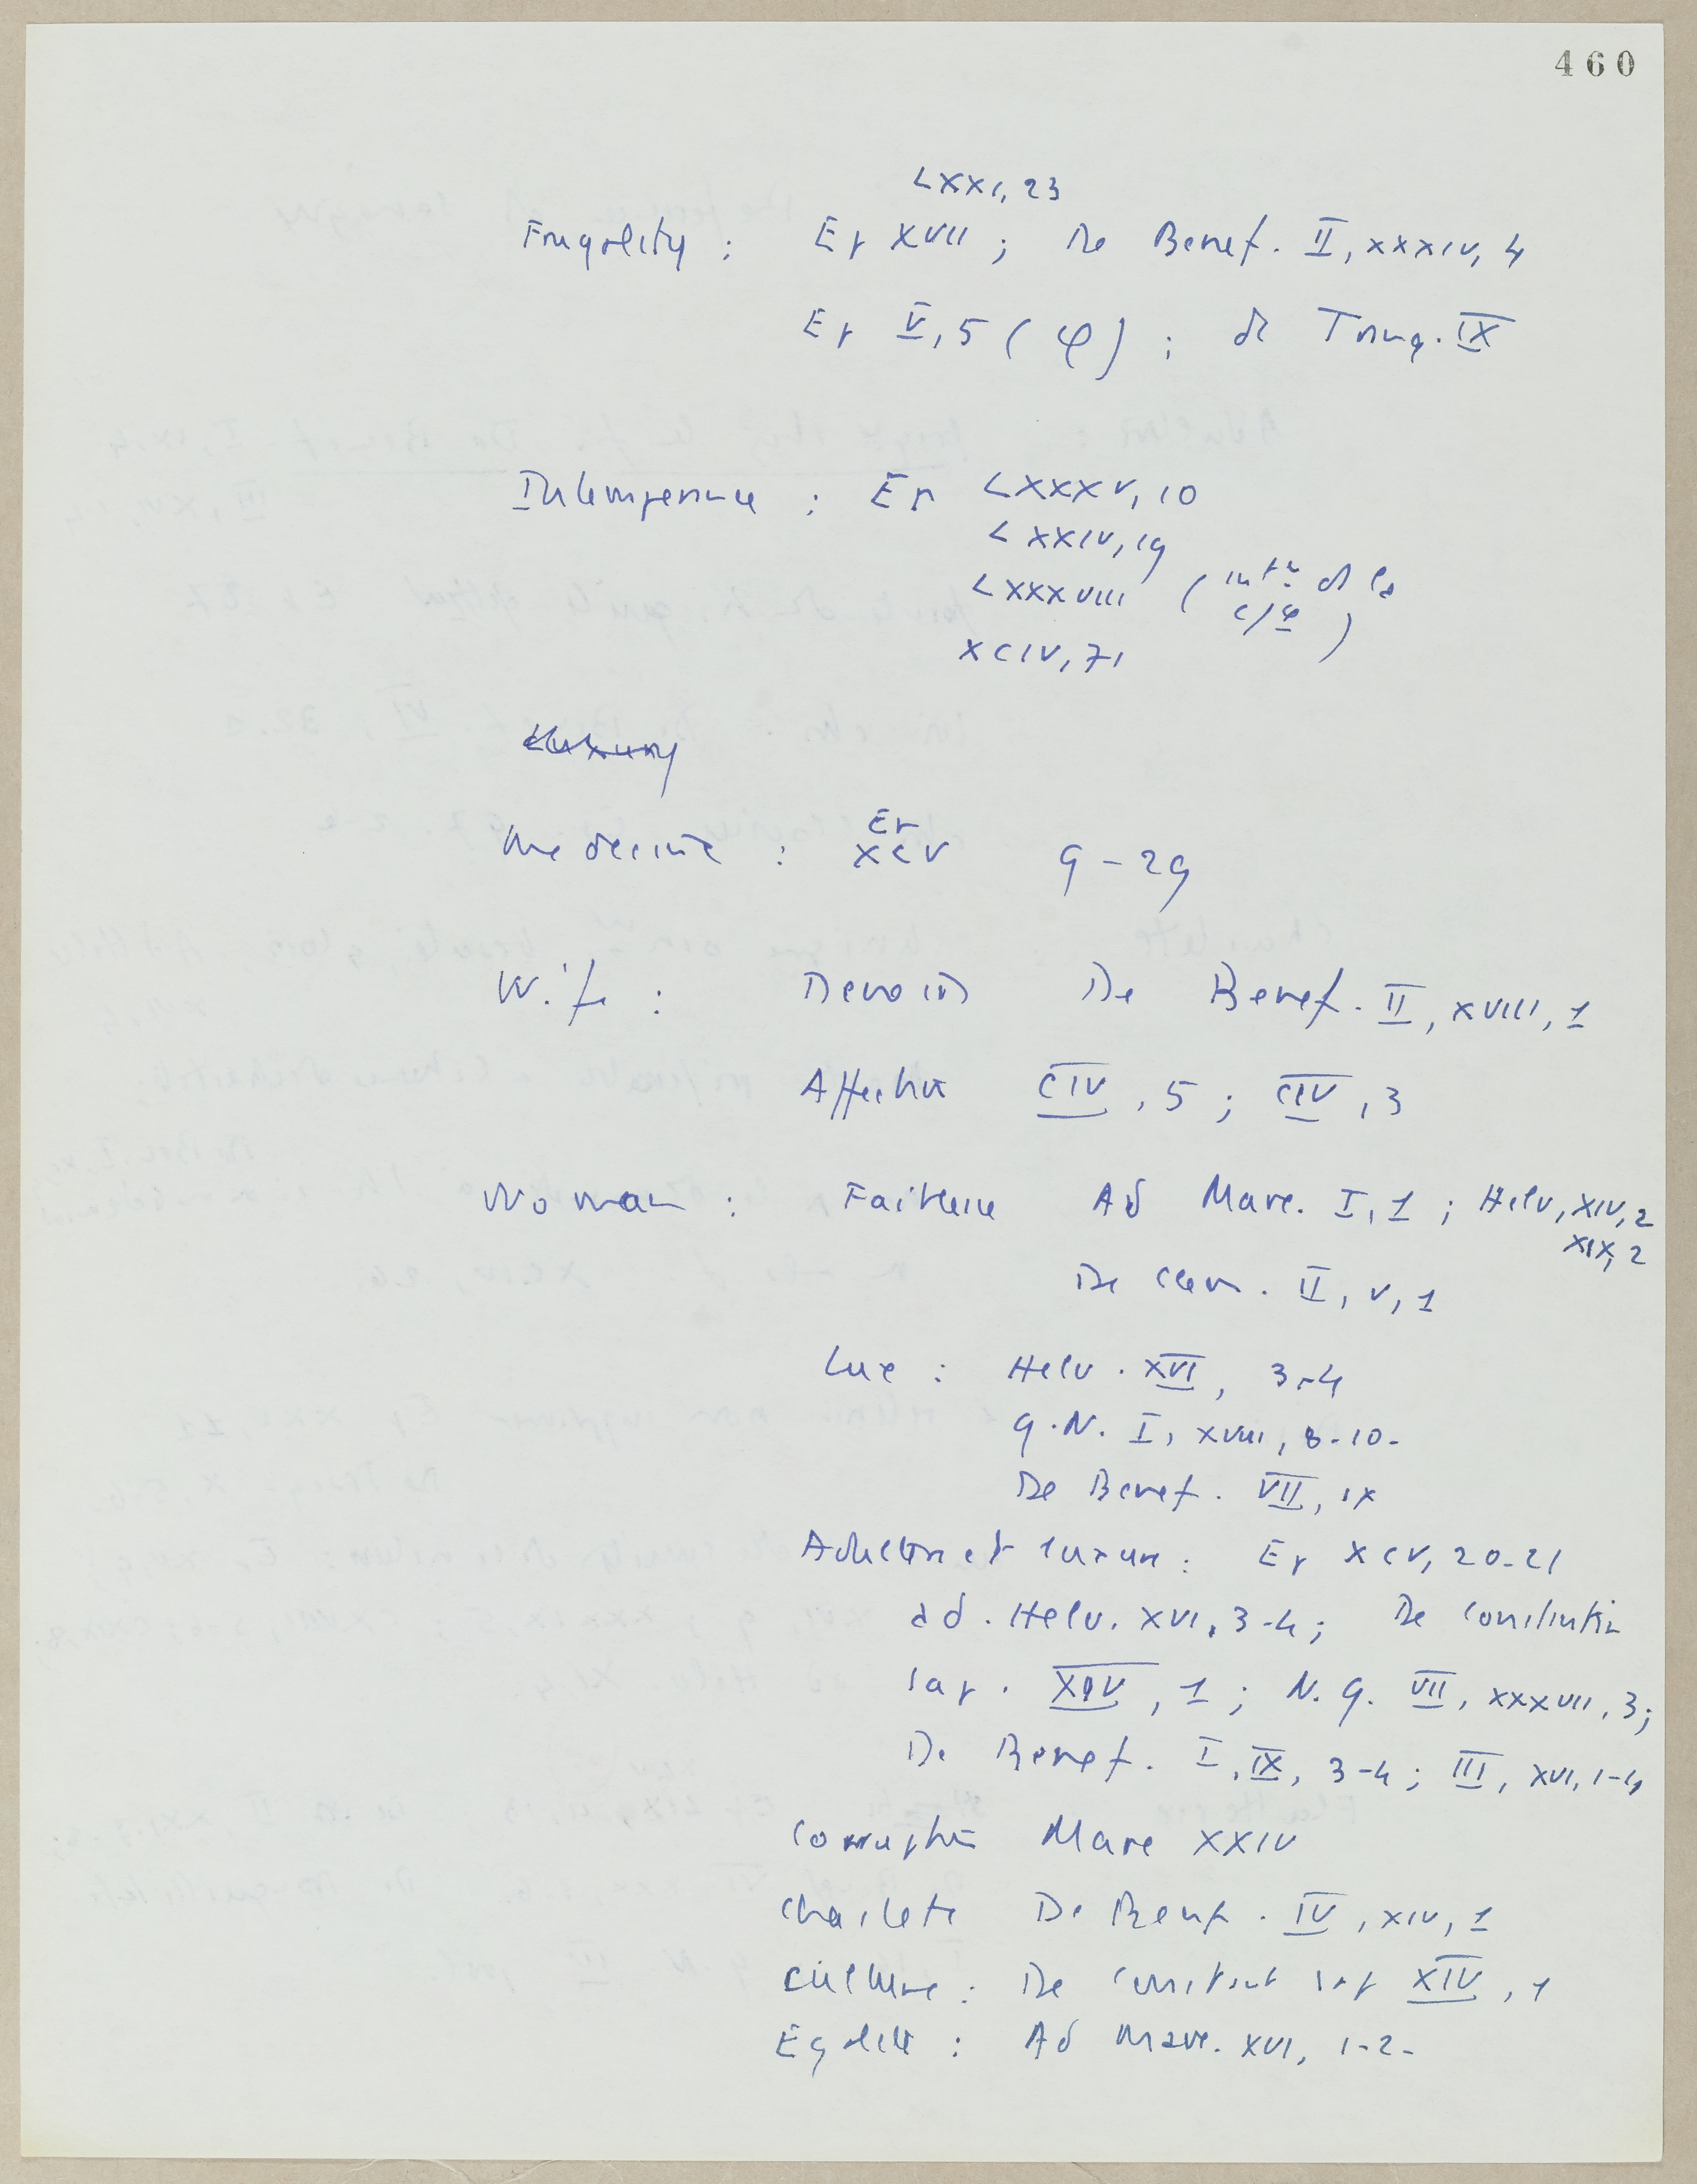 460
LXXI, 23
Frugality : Ep XVII ; De Benef. II, XXXIV, 4
Ep V, 5 ( φ ) ; de Tranq. IX
Intemperance : Ep LXXXV, 10
LXXIV, 19
LXXXVIII ( de la
c/φ )
XCIV, 71
Luxury
Ep
Medecine : XCV 9-29
Wife : Devoirs De Benef. II, XVIII, 1
Affection CIV, 5 ; CIV, 3
Woman : Faiblesse Ad Marc. I, 1 ; Helv, XIV, 2
XIX, 2
De Clem. II, V, 1
Luxe : Helv. XVI, 3-4
Q.N. I, XVII, 8-10-
De Benef. VII, IX
Adultère et luxure : Ep XCV, 20-21
ad. Helv. XVI, 3-4 ; De Constantia
Sap. XIV, 1 ; N.Q. VII, XXXVII, 3 ;
De Benef. I, IX, 3-4 ; III, XVI, 1-4
Corruption Marc XXIV
Chasteté De Benef. IV, XIV, 1
Culture : De Constant Sap XIV, 1
Egalité : Ad Marc. XVI, 1-2-